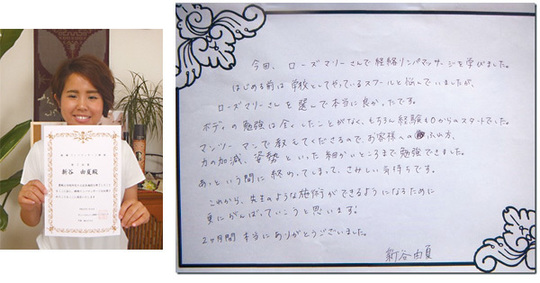 新谷 由夏殿
今回、ローズマリーさんで経絡リンパマッサージを学びました。
はじめる前は学校としてやっているスクールと悩んでいましたが、
ローズマリーさんを選んで本当に良かったです。
ボディの勉強は全くしたことがなく、もちろん経験も0からのスタートでした。
マンツーマンで教えてくださるので、お客様へのふれ方、
力の加減、姿勢といった細かいところまで勉強できました。
あっという間に終わってしまって、さみしい気持ちです。
これから、先生のような施術ができるようになるために
更にがんばっていこうと思います。
2ヶ月間本当にありがとうございました。
新谷由夏